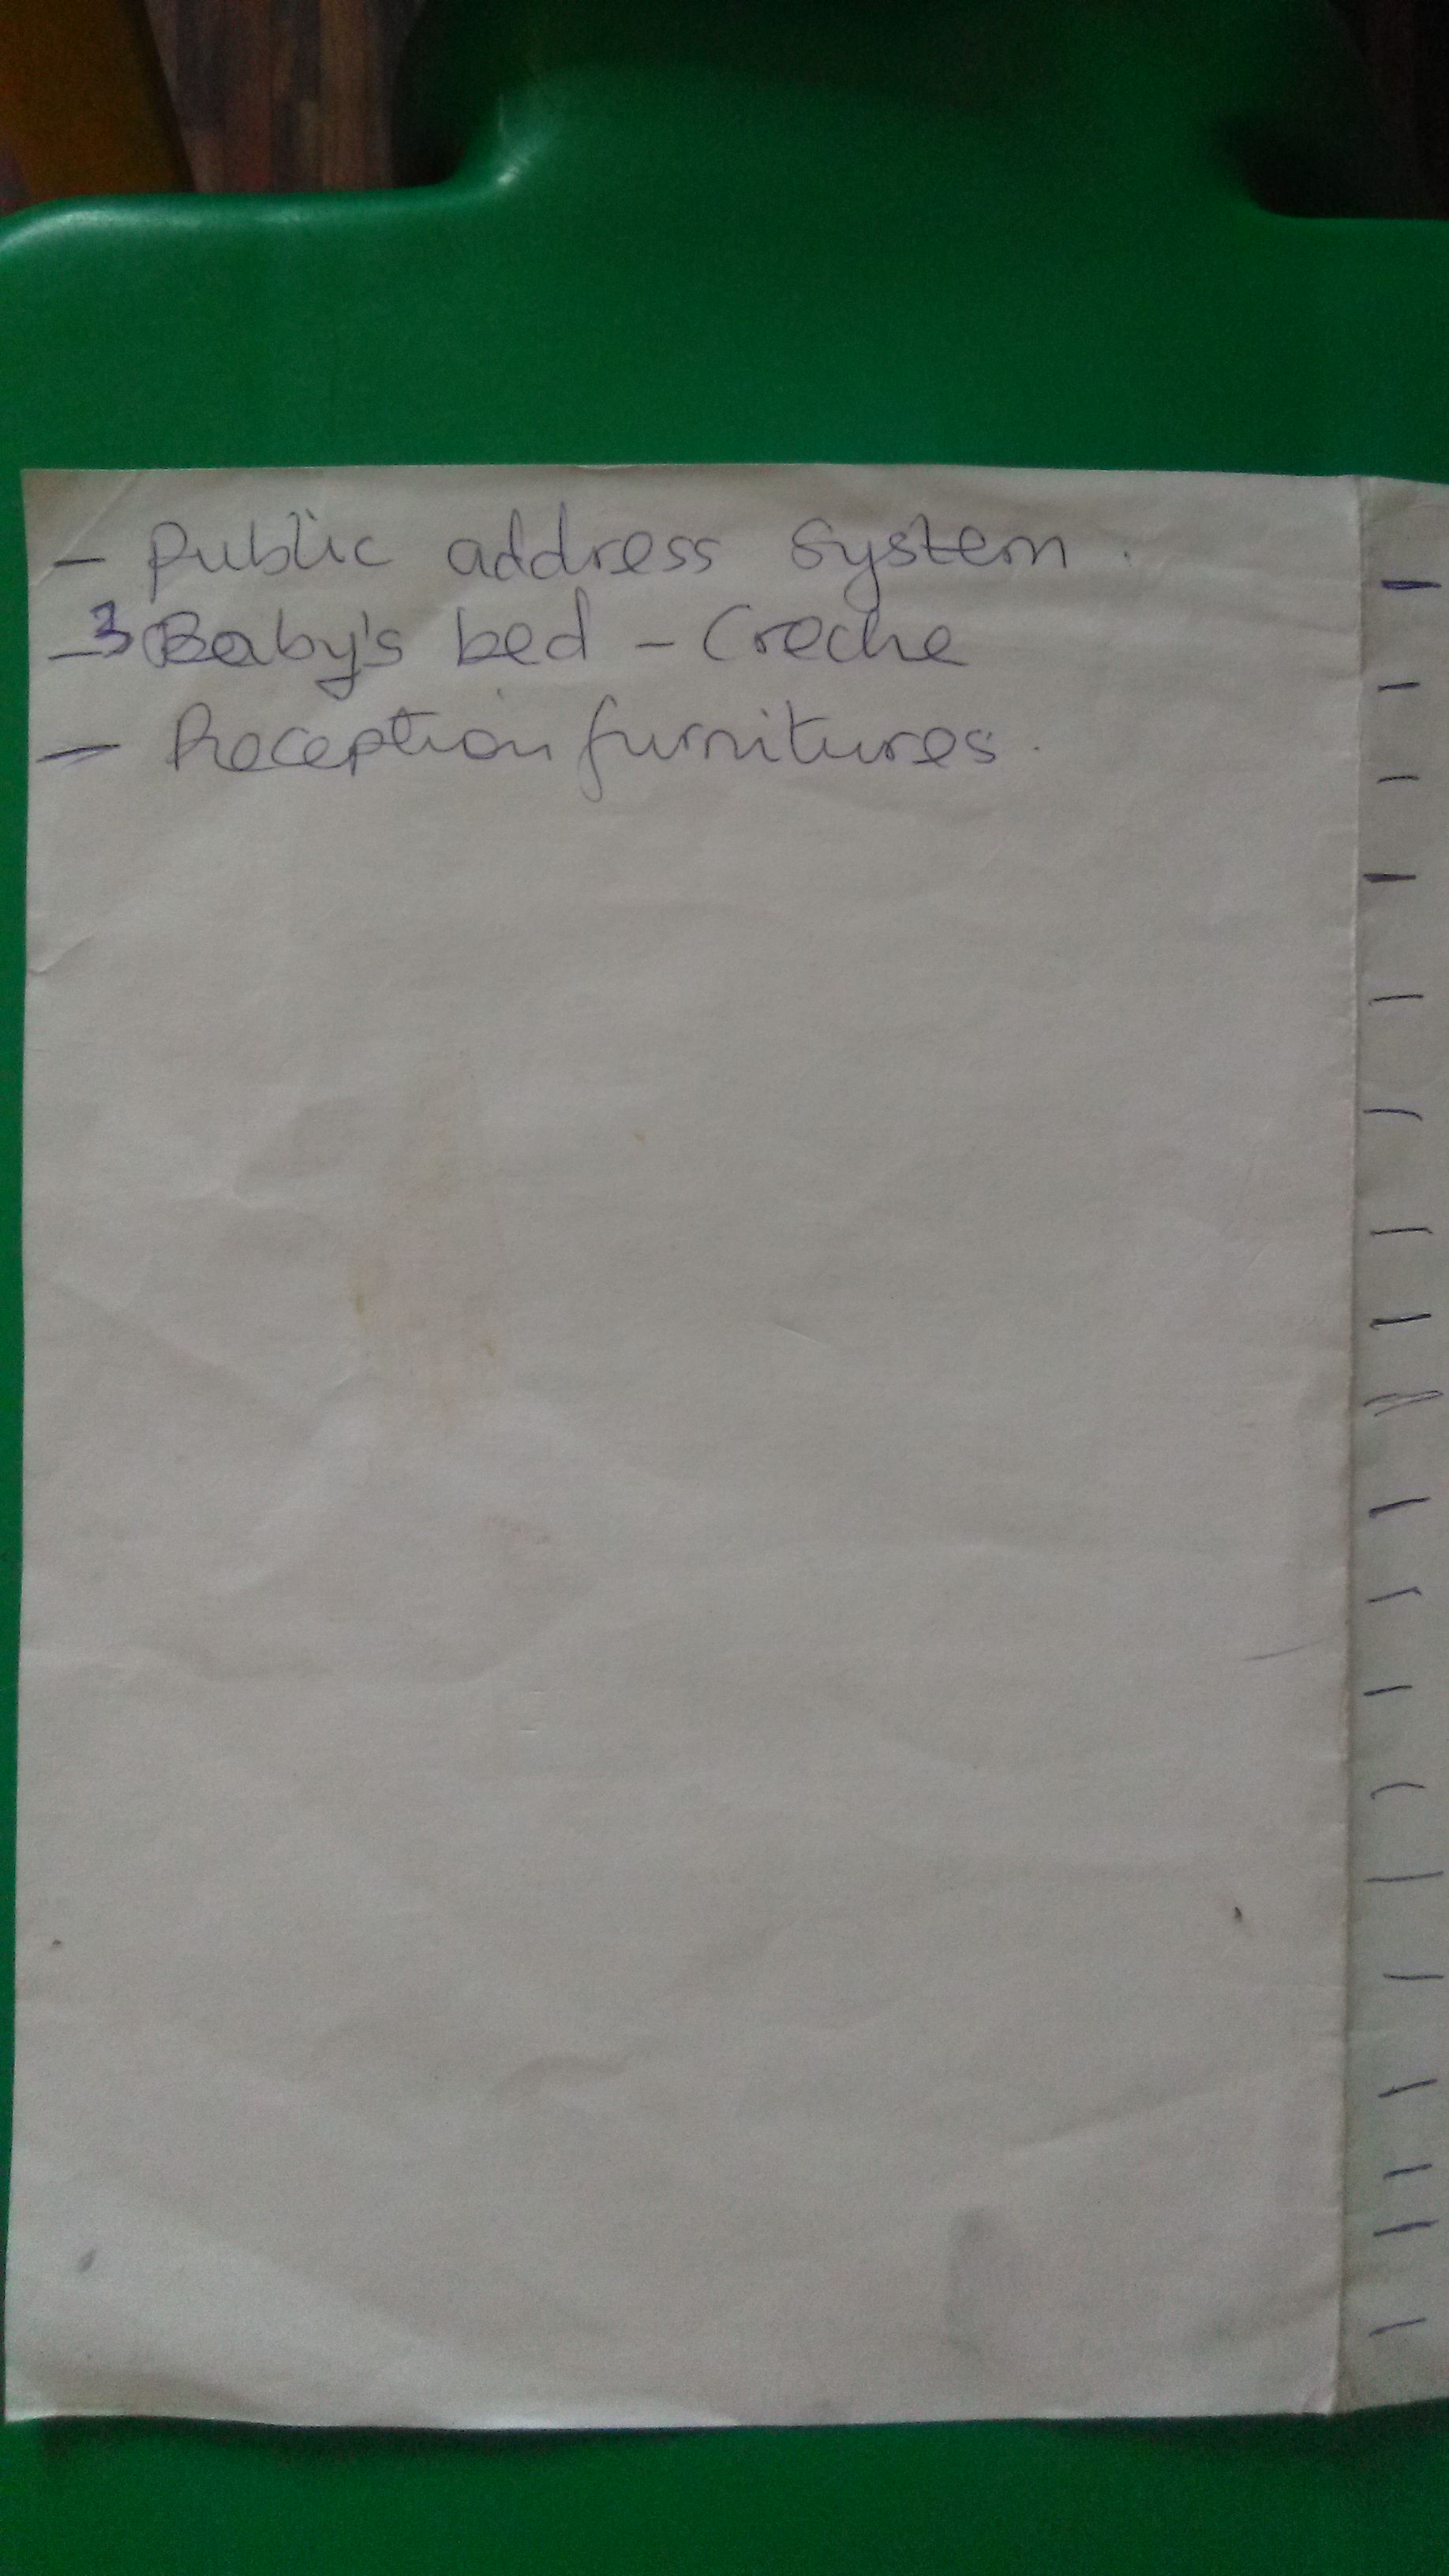 - Public address system.
- 3 Baby's bed - Creche
- Reception furnitures.